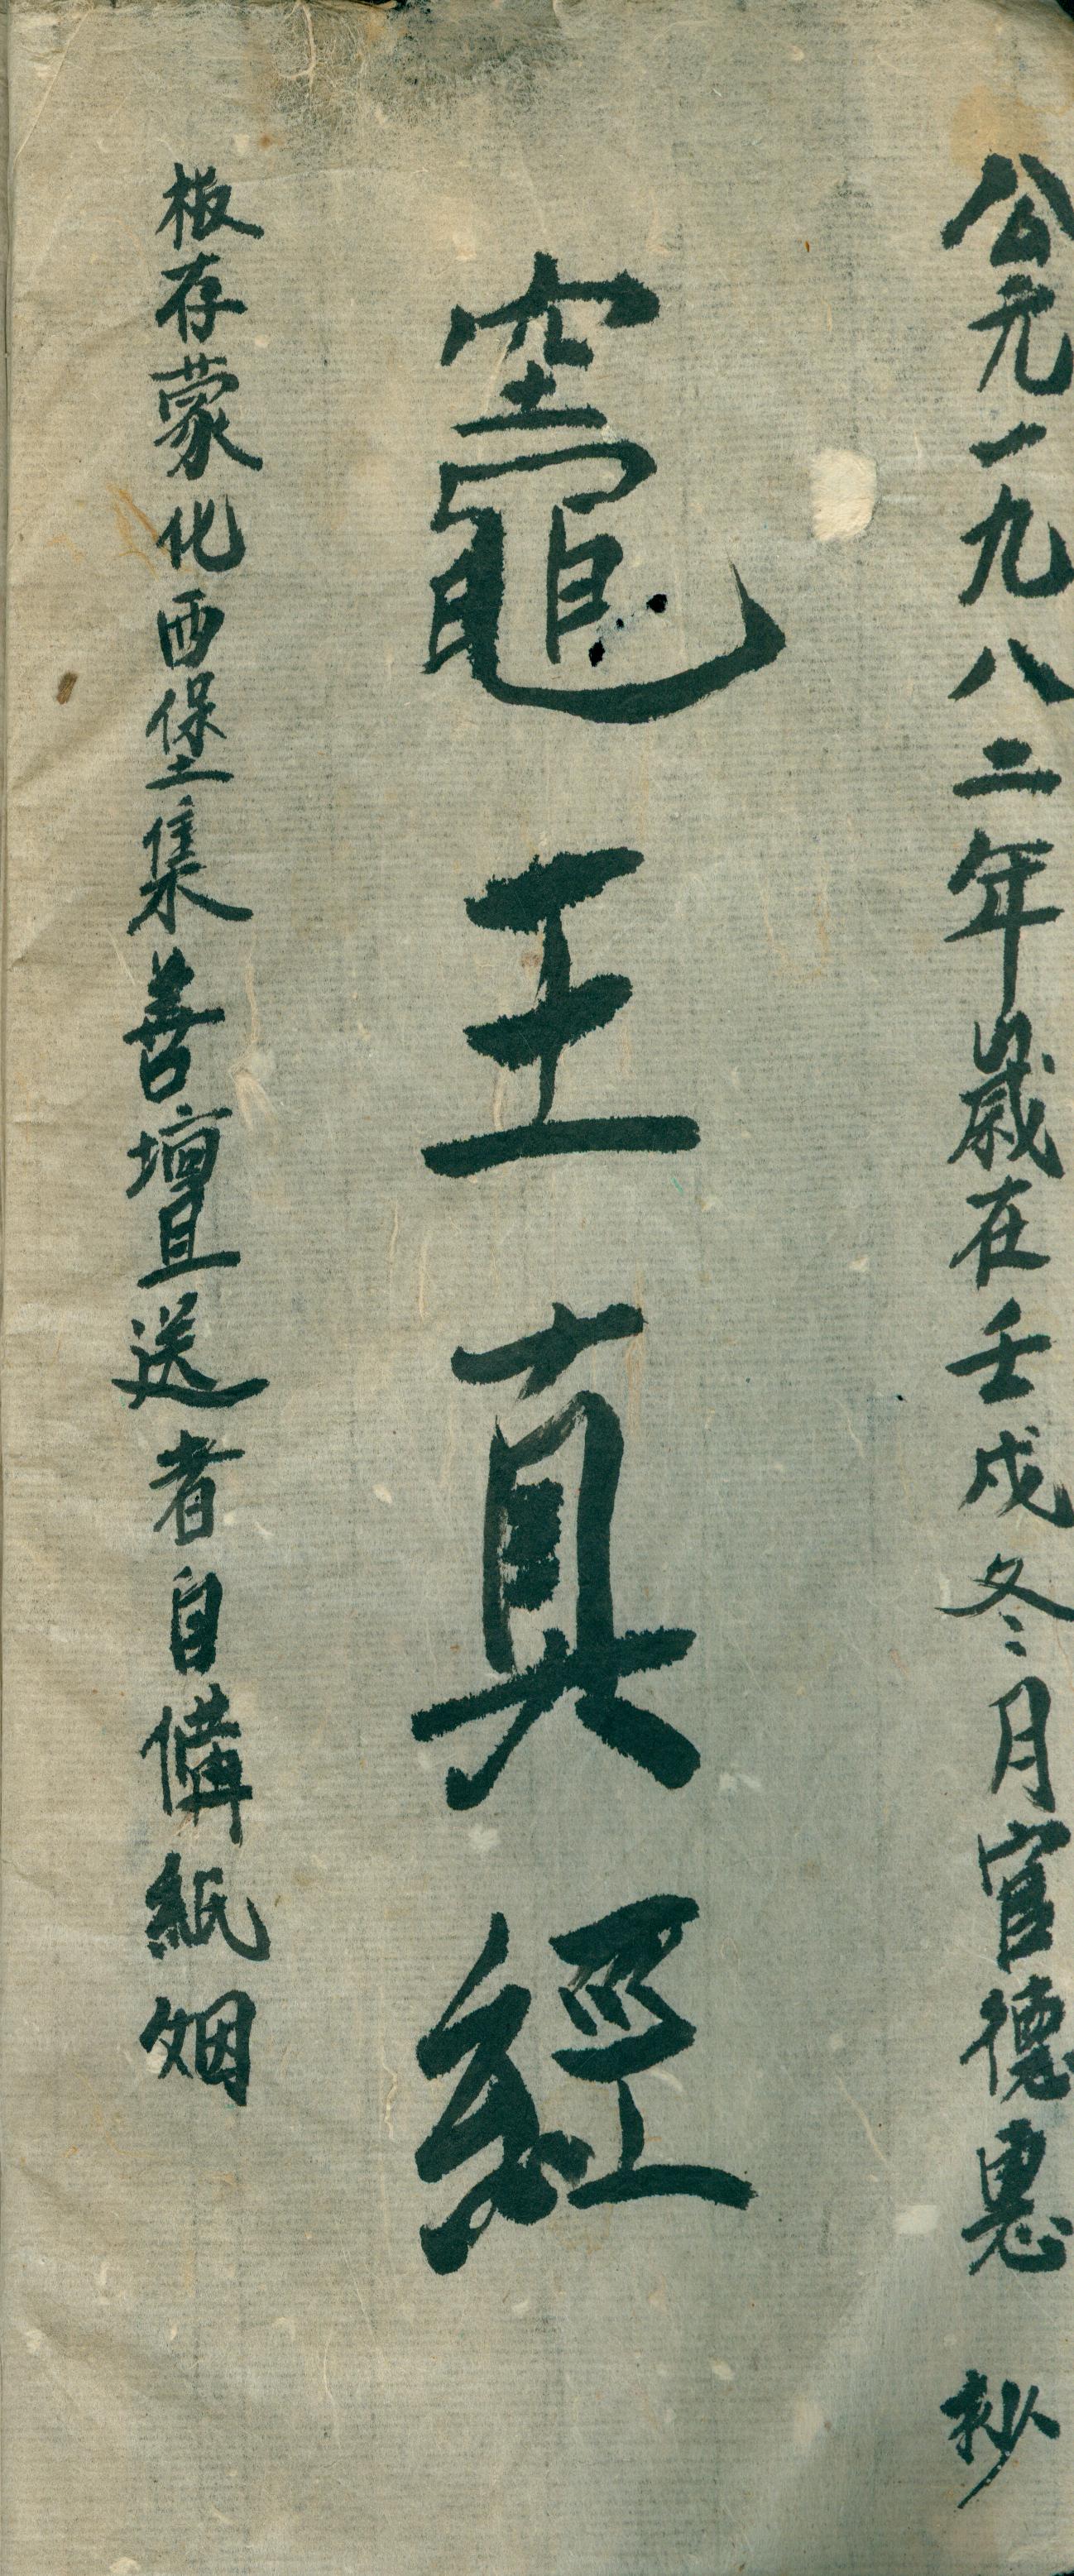 公元一九八二年歲在壬戌冬月官德惠 抄
竈王真經
板存蒙化西堡集善壇送者自備紙烟